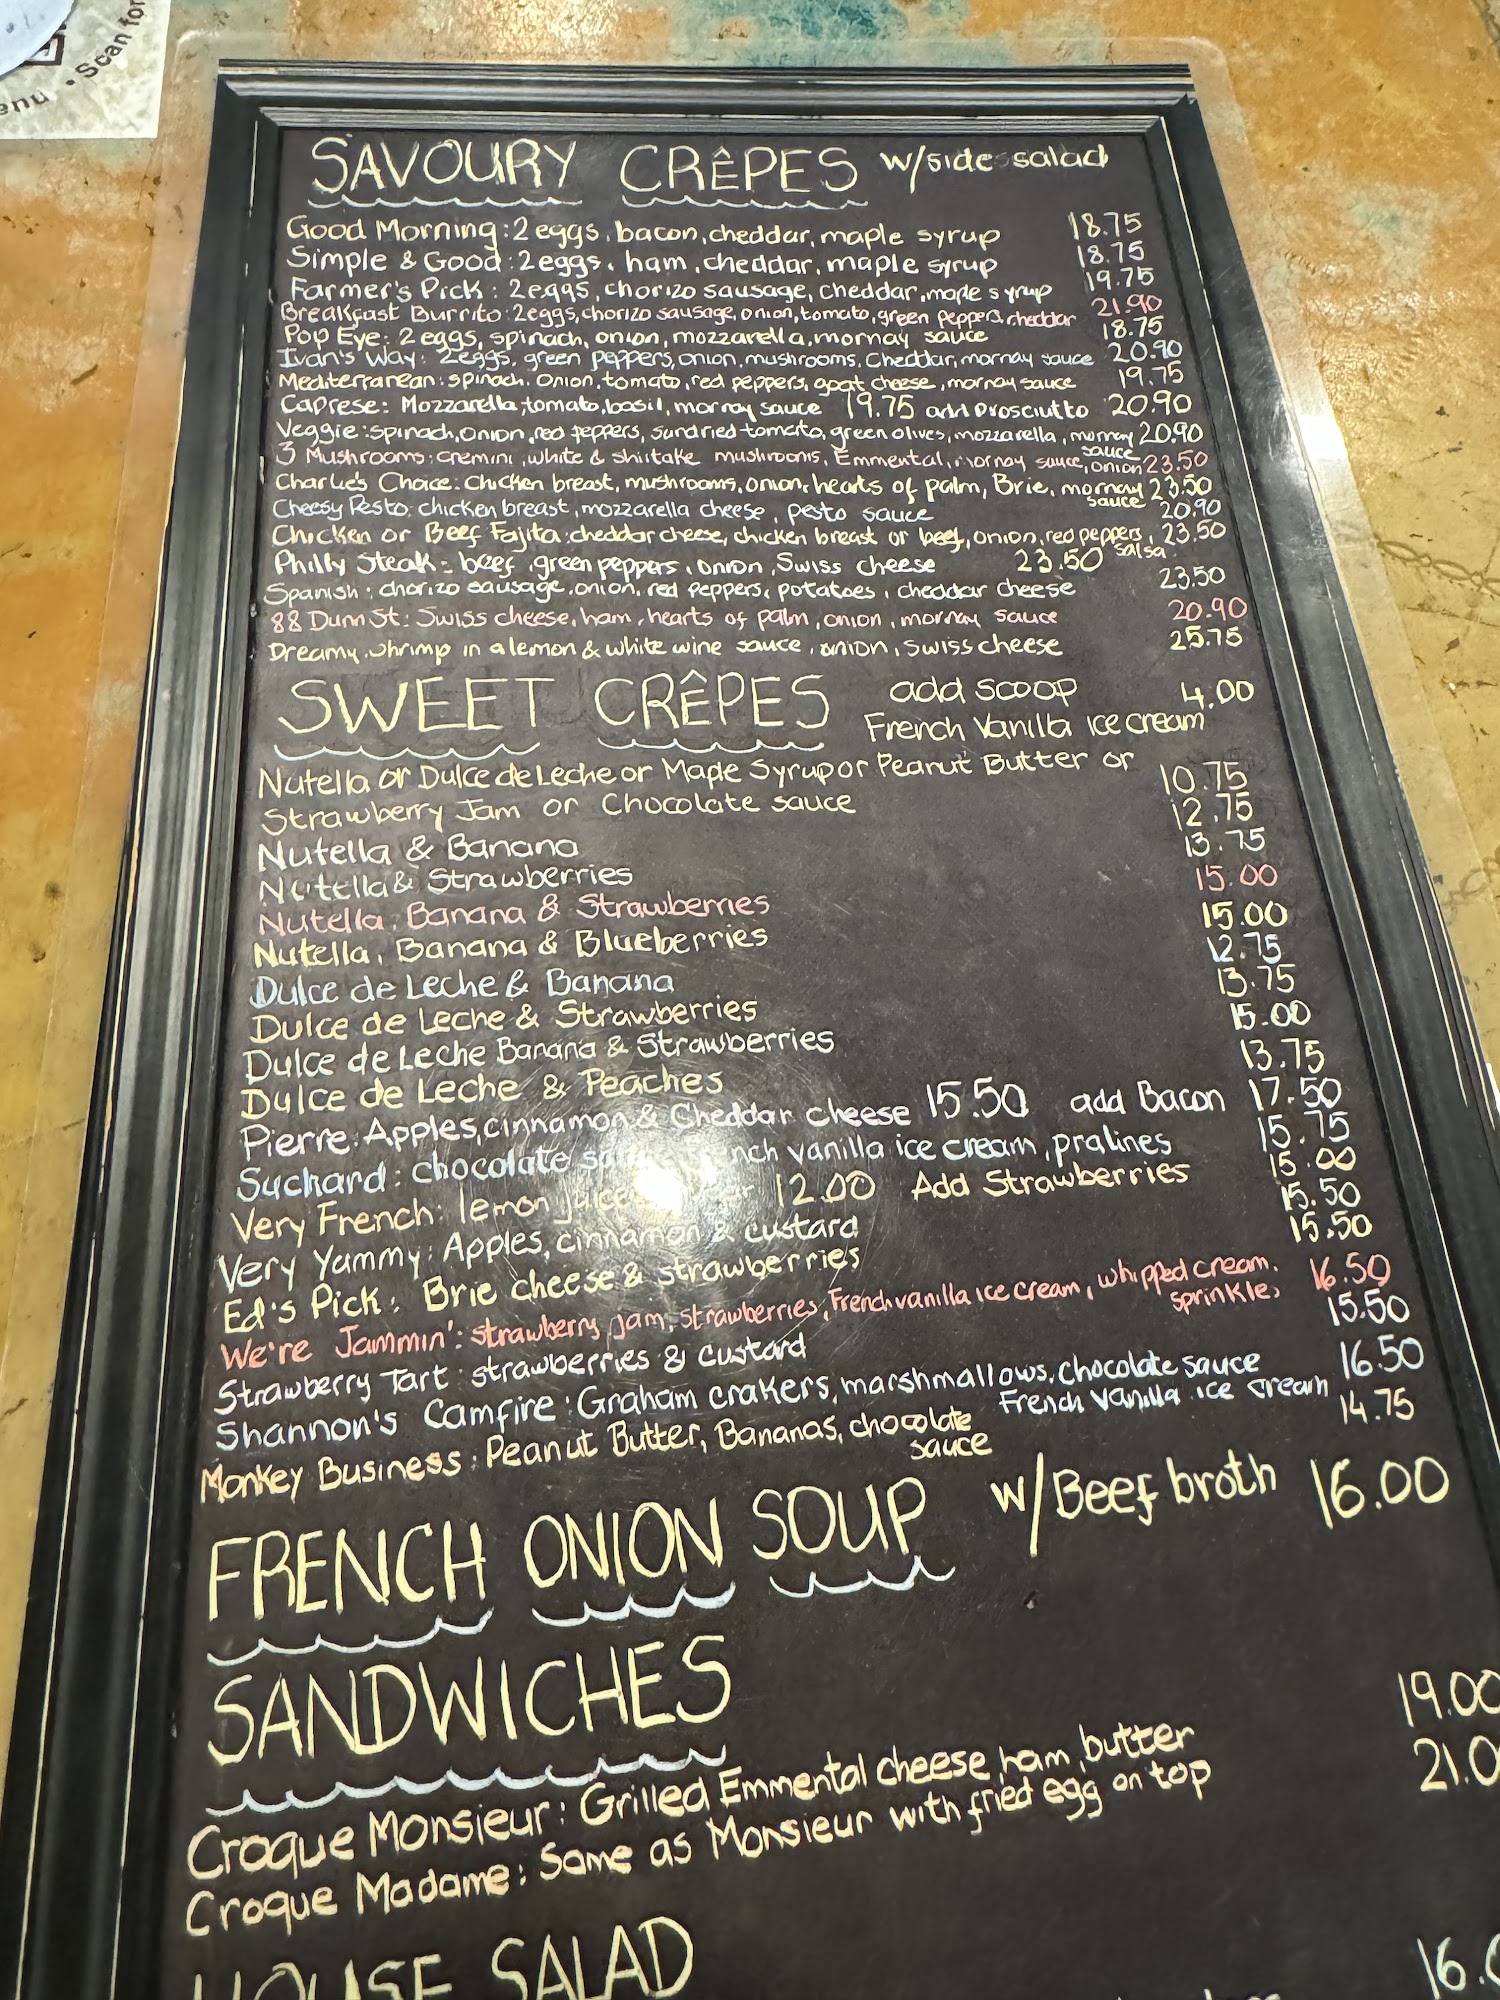 enu • Scan for
SAVOURY CRÊPES w/side salad
Good Morning: 2 eggs, bacon, cheddar, maple syrup 18.75
Simple & Good: 2 eggs, ham, cheddar, maple syrup 18.75
Farmer's Pick: 2 eggs, chorizo sausage, cheddar, maple syrup 19.75
Breakfast Burrito: 2 eggs, chorizo sausage, onion, tomato, green peppers, cheddar 21.90
Pop Eye: 2 eggs, spinach, onion, mozzarella, mornay sauce 18.75
Ivan's Way: 2 eggs, green peppers, onion, mushrooms, Cheddar, mornay sauce 20.90
Mediterranean: spinach, onion, tomato, red peppers, goat cheese, mornay sauce 19.75
Caprese: Mozzarella, tomato, basil, mornay sauce 19.75 add Prosciutto 20.90
Veggie: spinach, onion, red peppers, sundried tomato, green olives, mozzarella, mornay sauce 20.90
3 Mushrooms: cremini, white & shiitake mushrooms, Emmental, mornay sauce, onion 23.50
Charlie's Choice: chicken breast, mushrooms, onion, hearts of palm, Brie, mornay sauce 23.50
Cheesy Pesto: chicken breast, mozzarella cheese, pesto sauce 20.90
Chicken or Beef Fajita: cheddar cheese, chicken breast or beef, onion, red peppers, salsa 23.50
Philly Steak: beef, green peppers, onion, Swiss cheese 23.50
Spanish: chorizo sausage, onion, red peppers, potatoes, cheddar cheese 23.50
88 Dunn St: Swiss cheese, ham, hearts of palm, onion, mornay sauce 20.90
Dreamy: shrimp in a lemon & white wine sauce, onion, Swiss cheese 25.75
SWEET CRÊPES add scoop 4.00
French Vanilla ice cream
Nutella or Dulce de Leche or Maple Syrup or Peanut Butter or
Strawberry Jam or Chocolate sauce 10.75
Nutella & Banana 12.75
Nutella & Strawberries 13.75
Nutella, Banana & Strawberries 15.00
Nutella, Banana & Blueberries 15.00
Dulce de Leche & Banana 12.75
Dulce de Leche & Strawberries 13.75
Dulce de Leche Banana & Strawberries 15.00
Dulce de Leche & Peaches 13.75
Pierre: Apples, cinnamon & Cheddar cheese 15.50 add Bacon 17.50
Suchard: chocolate vanilla ice cream, pralines 15.75
Very French: lemon juice 12.00 Add Strawberries 15.00
Very Yammy: Apples, cinnamon & custard 15.50
Ed's Pick: Brie cheese & strawberries 15.50
We're Jammin': strawberry jam, strawberries, French vanilla ice cream, whipped cream, 16.50
sprinkles
Strawberry Tart: strawberries & custard 15.50
Shannon's Campfire: Graham crakers, marshmallows, chocolate sauce 16.50
French Vanilla ice cream
Monkey Business: Peanut Butter, Bananas, chocolate 14.75
sauce
FRENCH ONION SOUP w/Beef broth 16.00
SANDWICHES
Croque Monsieur: Grilled Emmental cheese ham, butter 19.00
Croque Madame: Same as Monsieur with fried egg on top 21.0
HOUSE SALAD 16.